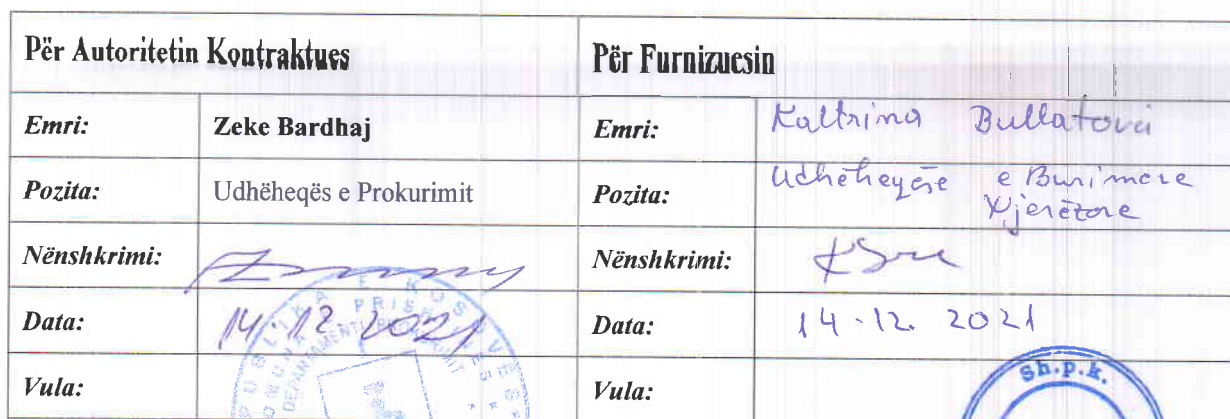 Për Autoritetin Kontraktues Për Furnizuesin
Emri: Zeke Bardhaj Emri: Kaltrina Bullatovci
Pozita: Udhëheqës e Prokurimit Pozita: Udhëheqëse e Burimeve
Njerëzore
Nënshkrimi: Nënshkrimi:
Data: 14.12.2021 Data: 14.12.2021
Vula: Vula:
Sh.p.k.